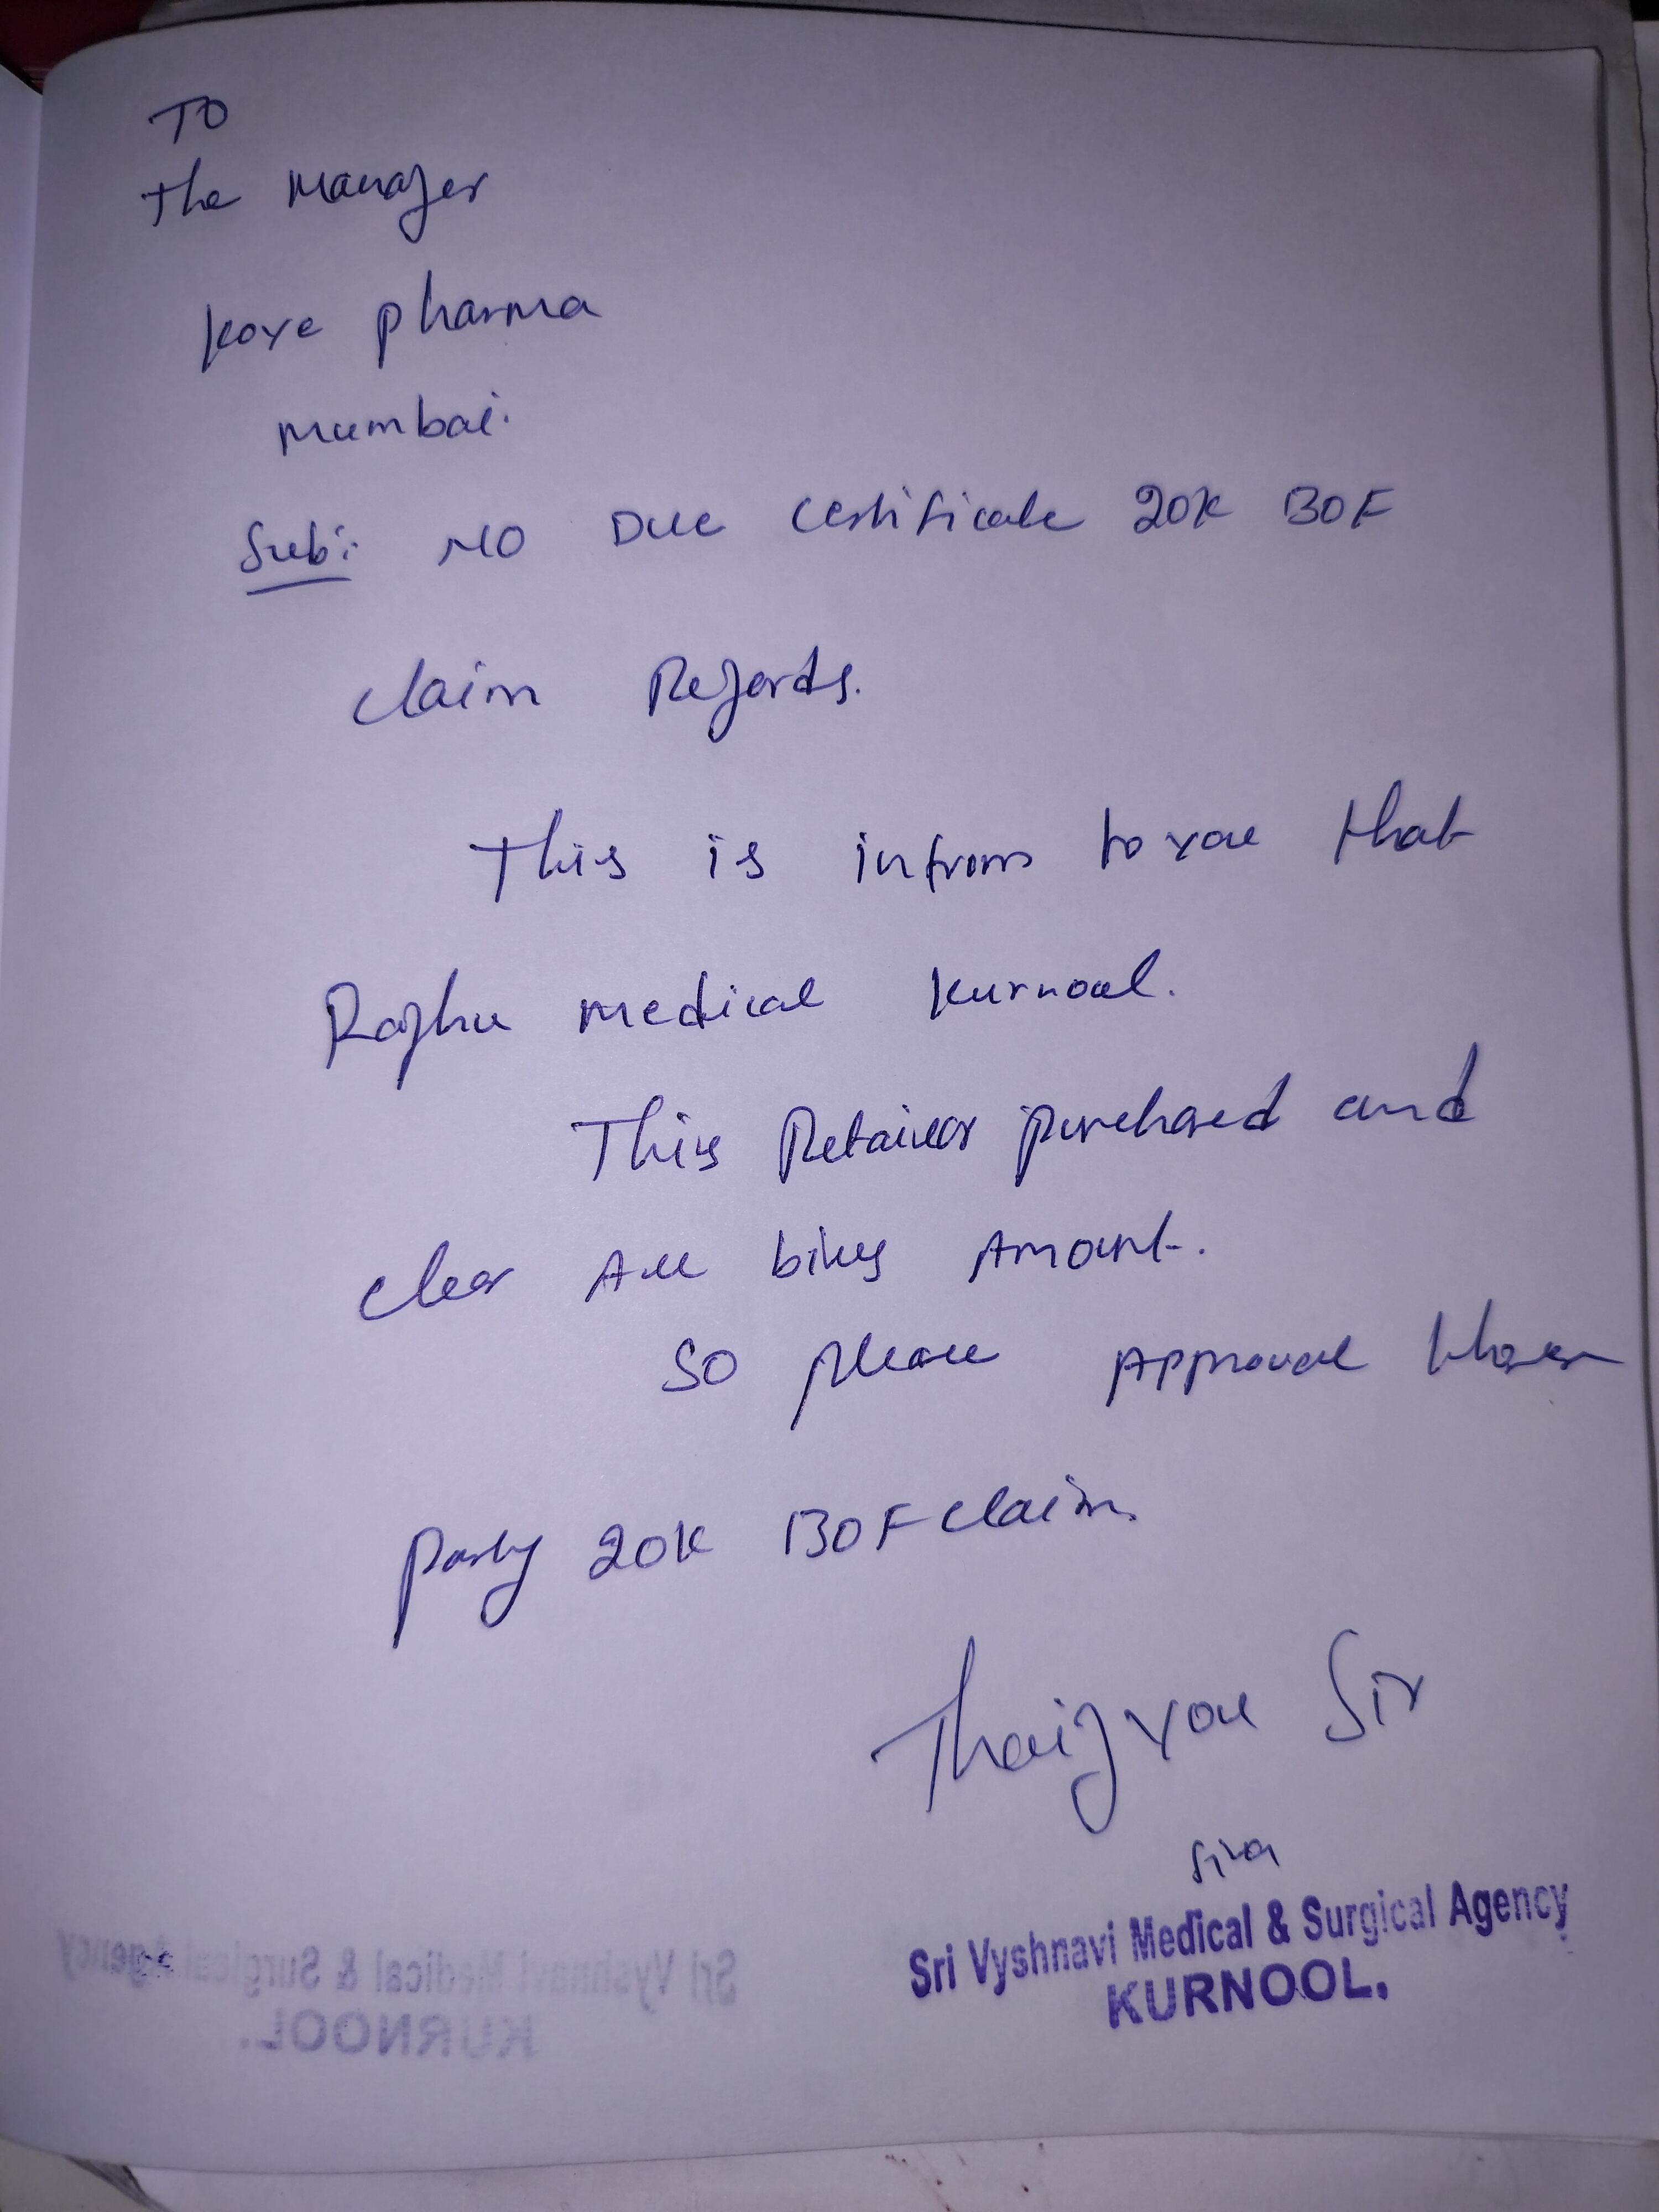 TO
The Manager
Kore pharma
Mumbai.
Sub:- NO Due Certificate 20K BOF
Claim Regards.
This is infrom to you that
Raghu medical Kurnool.
This Retailer purchased and
clear All bills Amount.
So please Approval
party 20K BOF claim.
you Sir
Siva
Sri Vyshnavi Medical & Surgical Agency
KURNOOL.
Sri Vyshnavi Medical & Surgical Agency
KURNOOL.